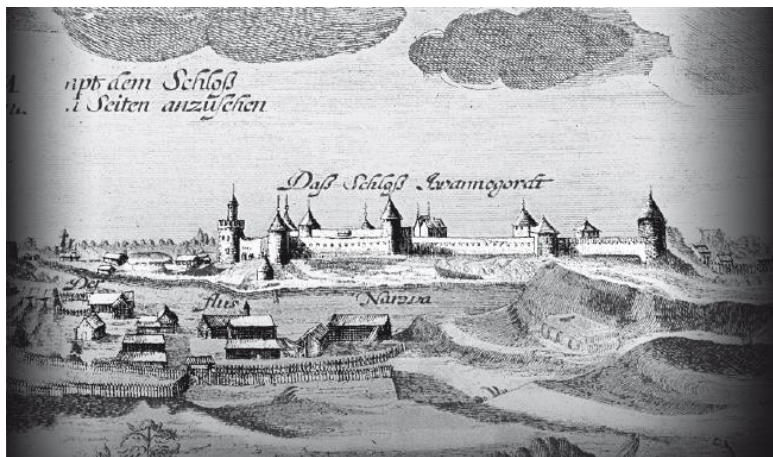 dem Schloß
Seiten anzusehen
Daß Schloß Iwannogordt
Der flus Narwa